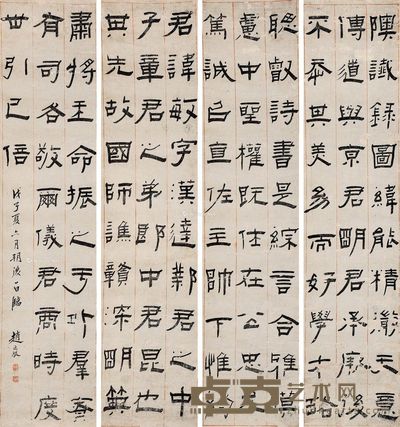 隩讖錄圖緯能精微天意
傳道與京君明君承厥後
不忝其美多而好學才略
聰叡詩書是綜言合雅謨
慮中聖權既仕在公忠
焦誠宣佐主帥下惟
君諱敏字漢達郭君之中
子章君之弟郎中君昆也
其先故國師譙贛深明箕
肅將王命振之于外羣寮
有司各敬爾儀君商時度
世引已倍
戊子夏六月 趙
卓克艺术网